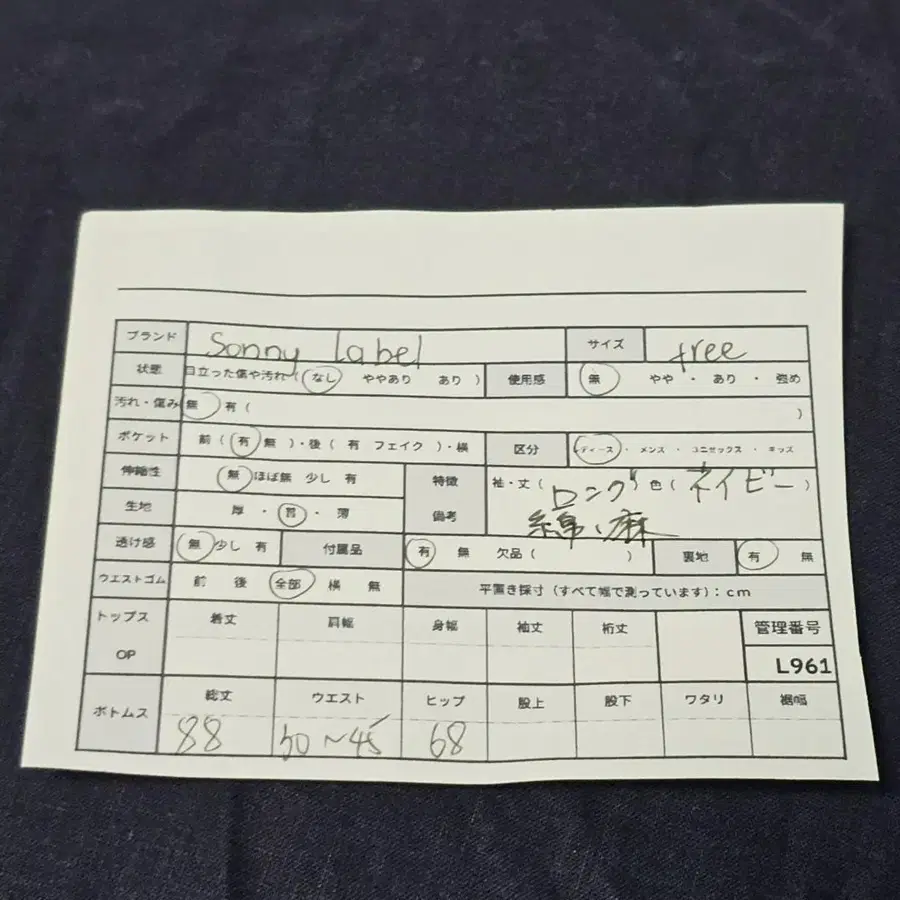 ブランド sonny label サイズ free
状態 目立った傷や汚れ ( なし ややあり あり ) 使用感 無 やや ・ あり ・ 強め
汚れ・傷み 無 有 ( )
ポケット 前 ( 有 無 ) ・後 ( 有 フェイク ) ・横 区分 レディース ・ メンズ ・ ユニセックス ・ キッズ
伸縮性 無 ほぼ無 少し 有 特徴 備考 袖・丈 ( ロング ) 色 ( ネイビー )
綿、麻
生地 厚 ・ 普 ・ 薄
透け感 無 少し 有 付属品 有 無 欠品 ( ) 裏地 有 無
ウエストゴム 前 後 全部 横 無 平置き採寸 (すべて幅で測っています) : cm
トップス OP 着丈 肩幅 身幅 袖丈 裄丈 管理番号
L961
ボトムス 総丈 ウエスト ヒップ 股上 股下 ワタリ 裾幅
88 30～45 68